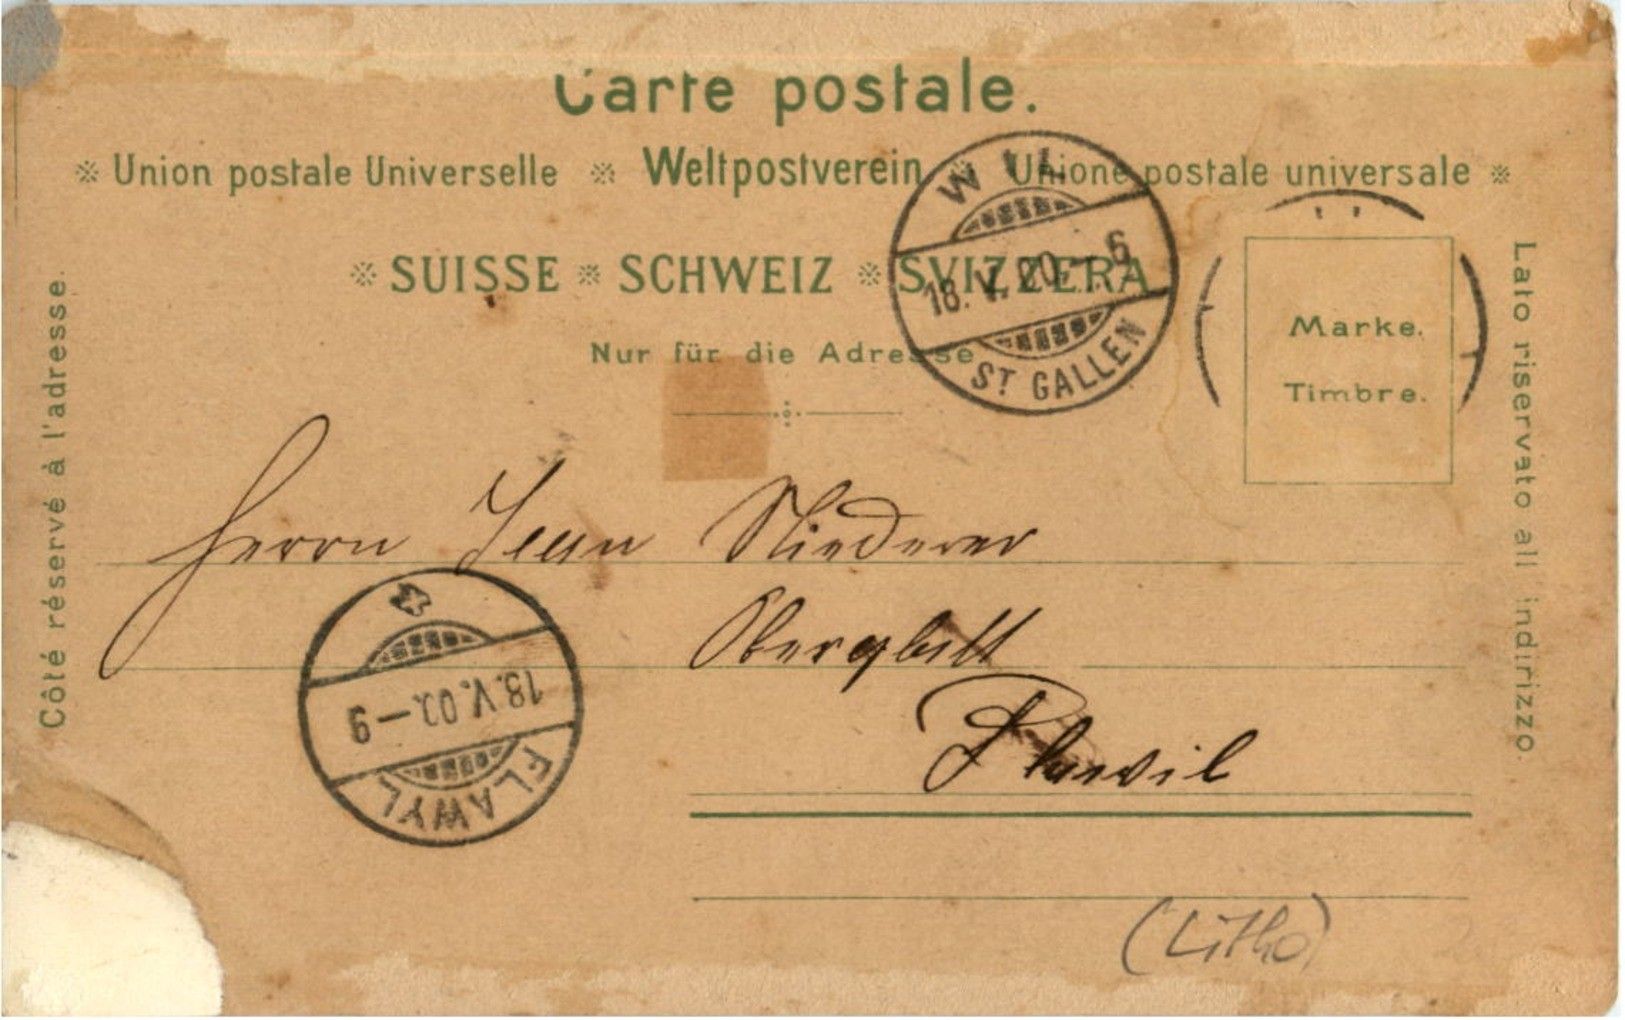 Carte postale.
※ Union postale Universelle ※ Weltpostverein ※ Unione postale universale ※
※ SUISSE ※ SCHWEIZ ※ SVIZZERA
Nur für die Adresse
Côté réservé à l'adresse.
Lato riservato all indirizzo.
Marke.
Timbre.
WYL
18. V. 00. - 6
ST GALLEN
Herrn Jean Niederer
Flawil
18. V. 00. - 9
FLAWYL
(Litho)